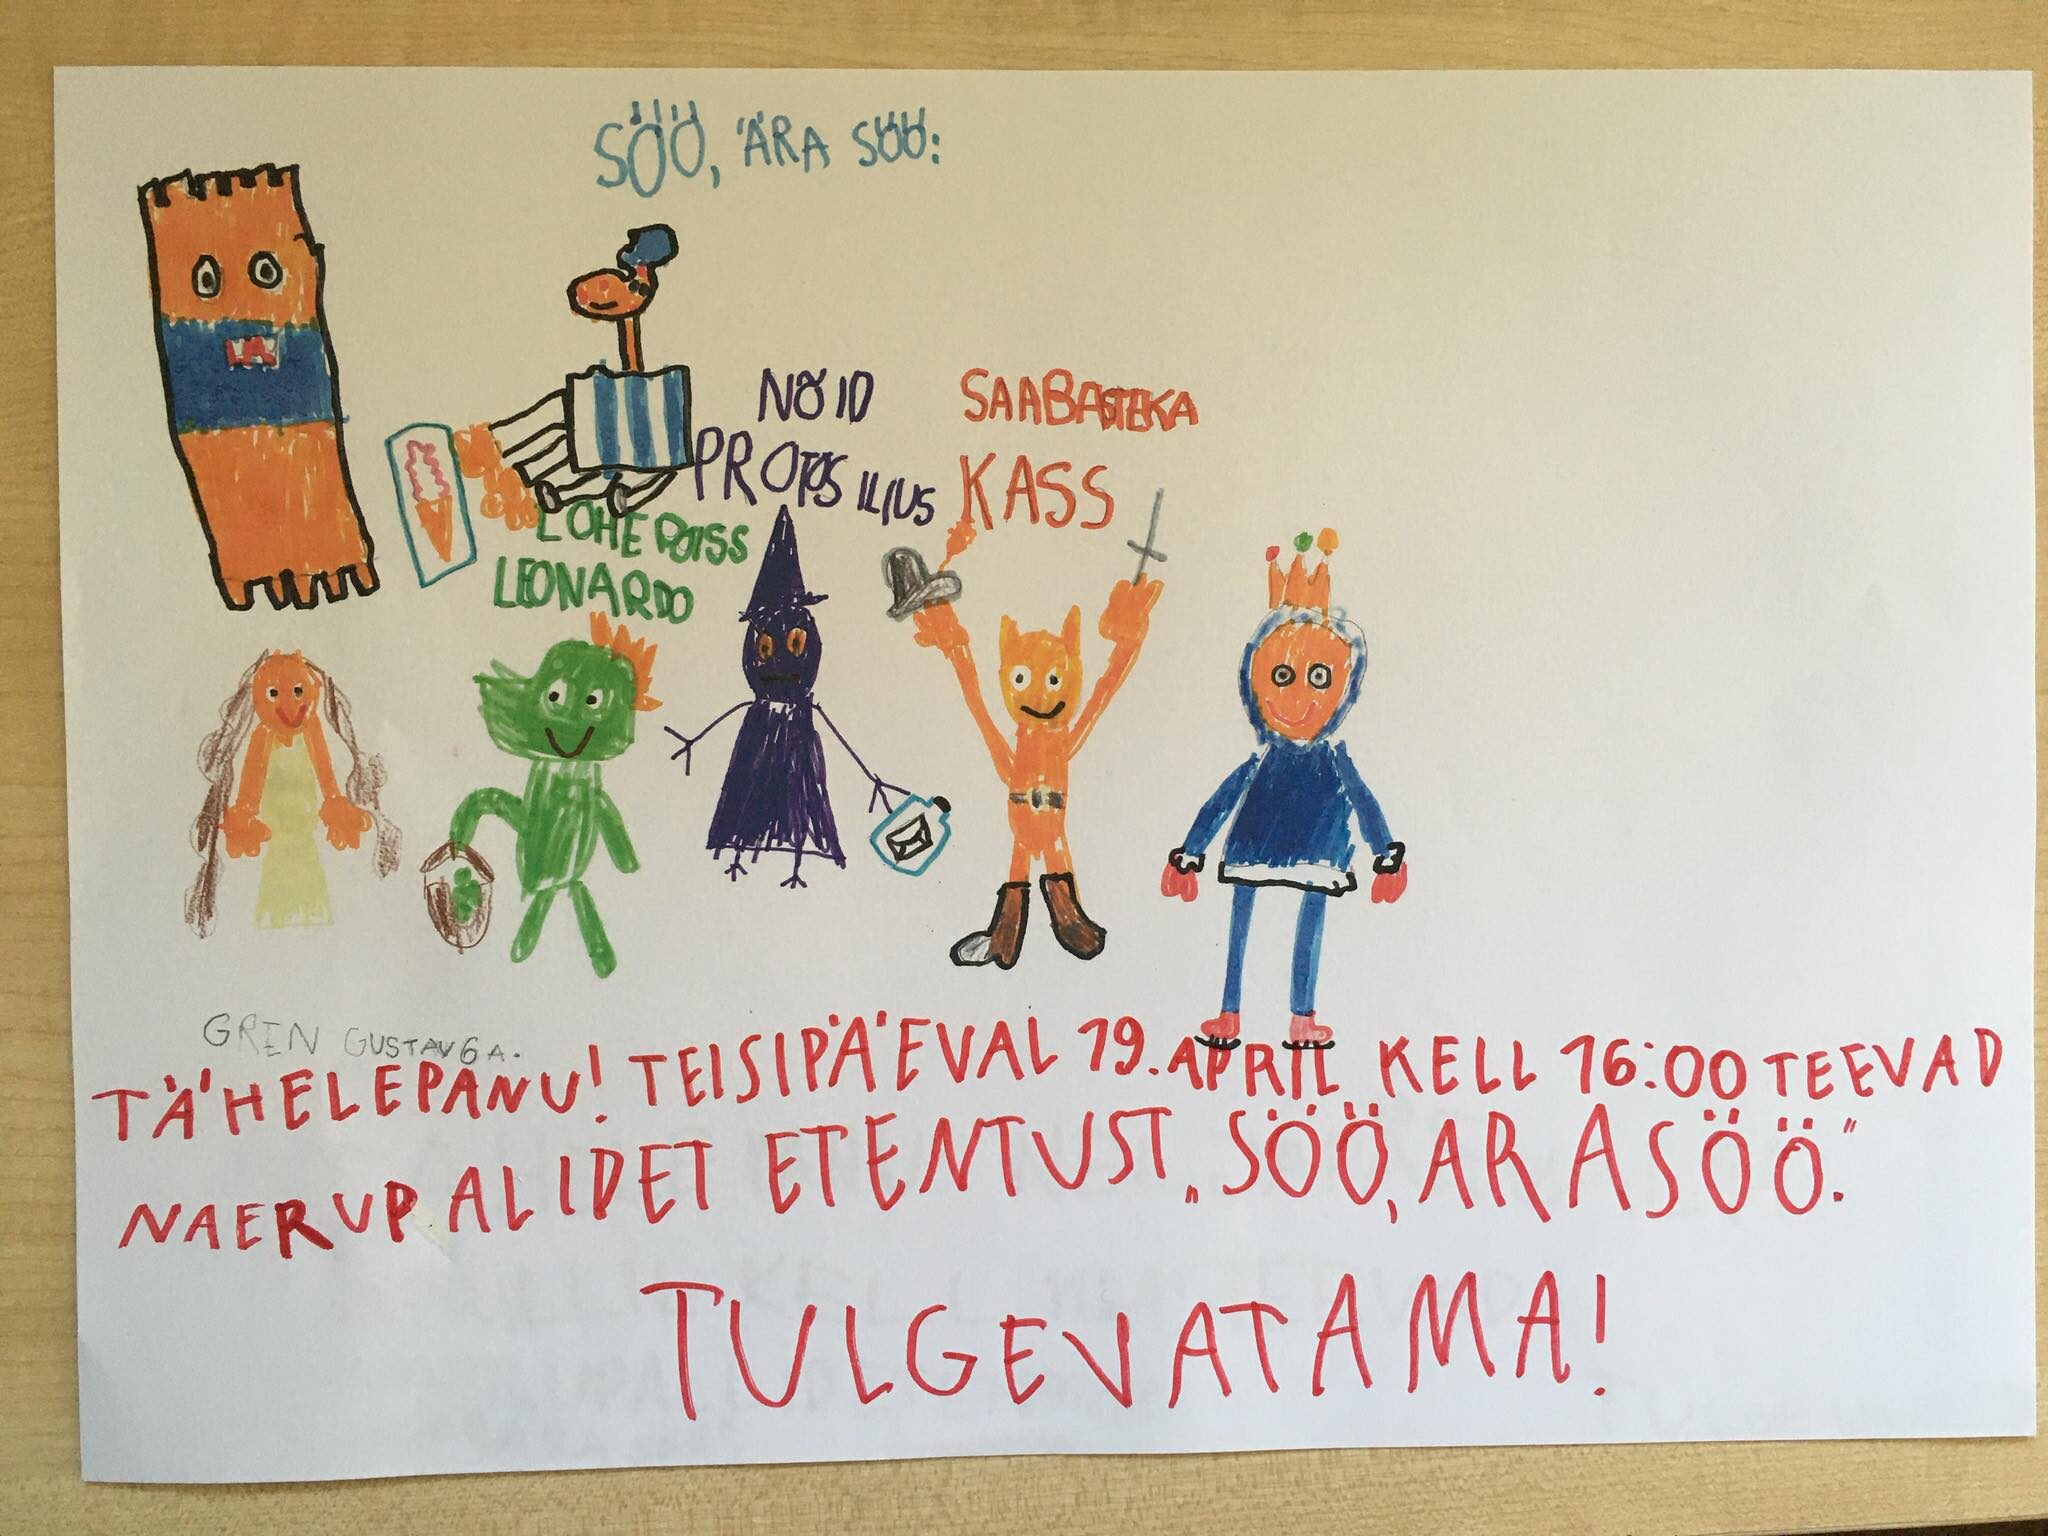 SÖÖ, ÄRA SÖÖ:
NÕID
PROTOSILIUS
SAABASTEKA
KASS
LOHEPOISS
LEONARDO
GREN GUSTAV 6 A.
TÄHELEPANU! TEISIPÄEVAL 19. APRIL KELL 16:00 TEEVAD
NAERUPALIDET ETENTUST „SÖÖ, ARA SÖÖ."
TULGE VATAMA!